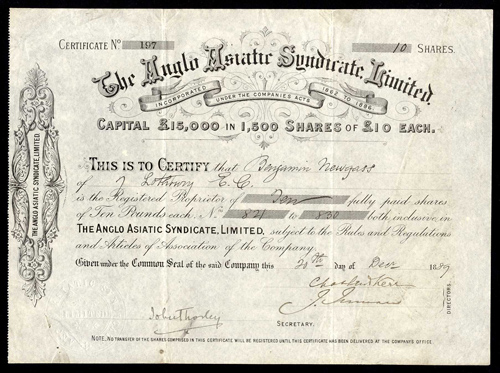 CERTIFICATE No 197 10 SHARES.
The Anglo Asiatic Syndicate, Limited.
INCORPORATED UNDER THE COMPANIES ACTS 1862 TO 1886
CAPITAL £15,000 IN 1,500 SHARES OF £10 EACH.
THE ANGLO ASIATIC SYNDICATE, LIMITED.
THIS IS TO CERTIFY that Benjamin Newgass
of Lothbury E.C.
is the Registered Proprietor of Ten fully paid shares
of Ten Pounds each, No 821 to 830 both inclusive, in
THE ANGLO ASIATIC SYNDICATE, LIMITED, subject to the Rules and Regulations
and Articles of Association of the Company.
Given under the Common Seal of the said Company this 20th day of Decr 1889
DIRECTORS.
SECRETARY.
NOTE. NO TRANSFER OF THE SHARES COMPRISED IN THIS CERTIFICATE WILL BE REGISTERED UNTIL THIS CERTIFICATE HAS BEEN DELIVERED AT THE COMPANY'S OFFICE.